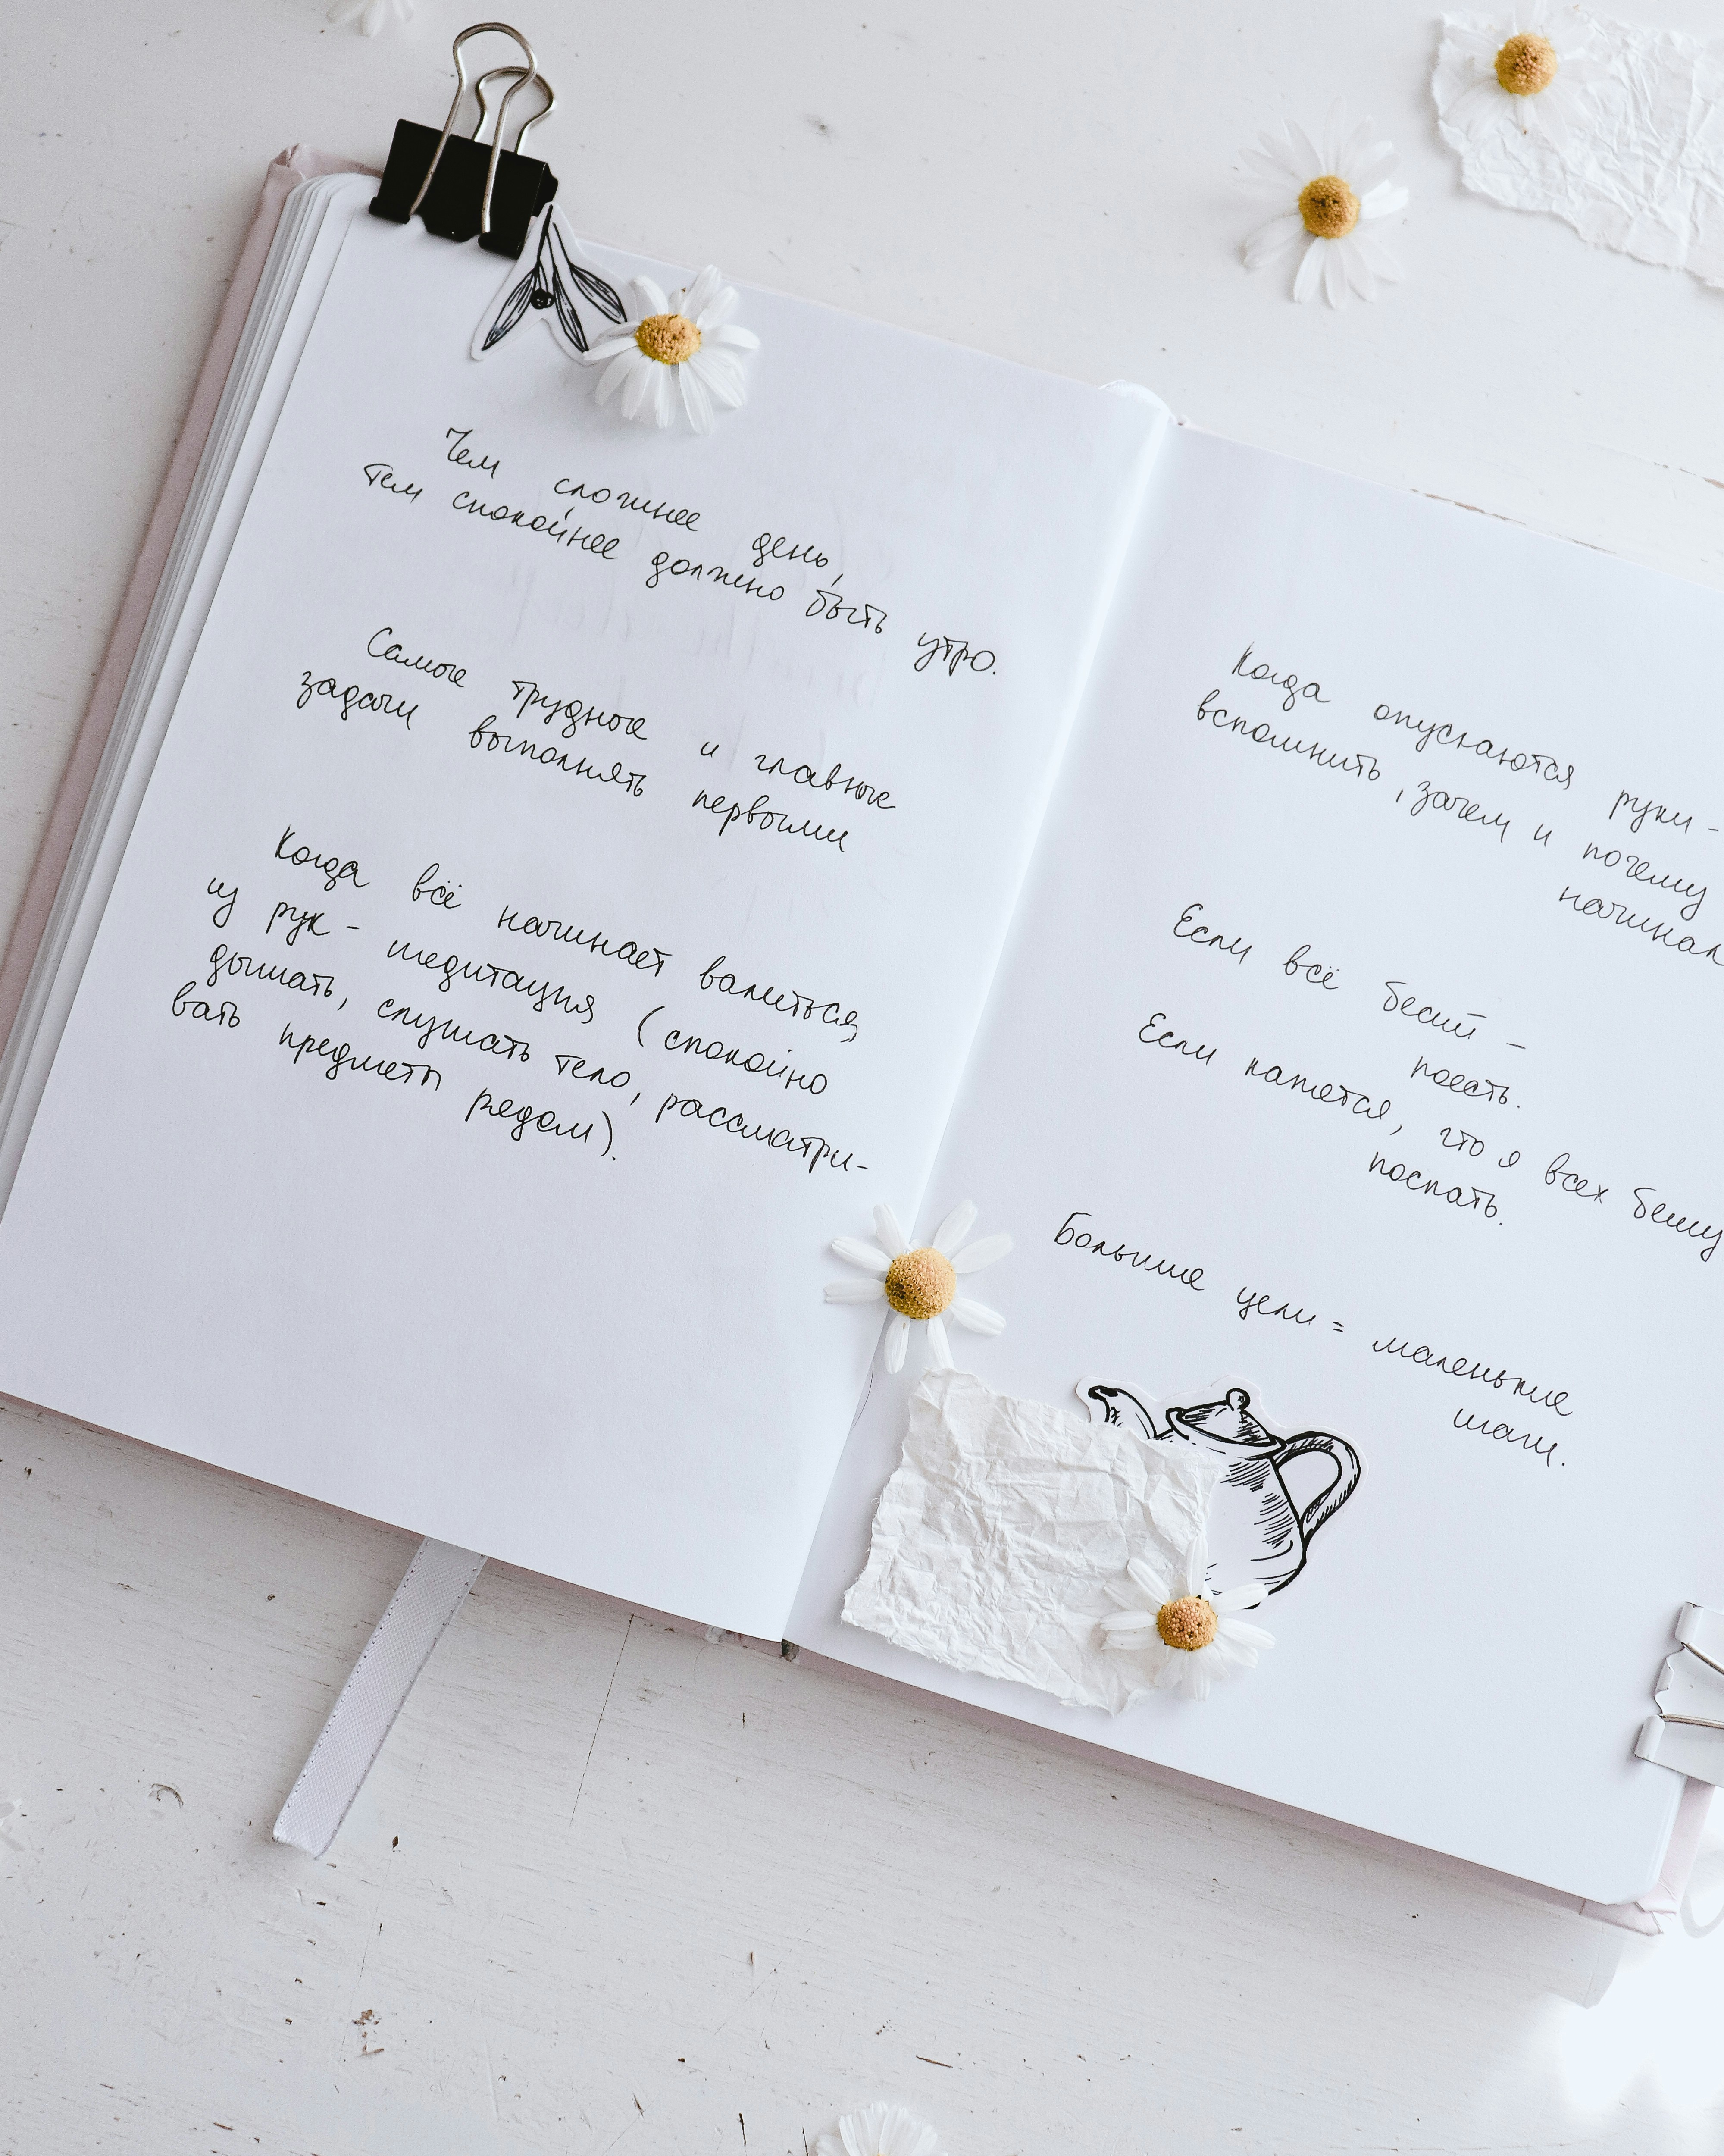 Чем сложнее день,
тем спокойнее должно быть утро.
Самые трудные и главные
задачи выполнять первыми
Когда всё начинает валиться
из рук - медитация (спокойно
дышать, слушать тело, рассматри-
вать предметы рядом).
Когда опускаются руки -
вспомнить, зачем и почему
начинал
Если всё бесит -
поесть.
Если кажется, что я всех бешу
поспать.
Большие цели = маленькие
шаги.